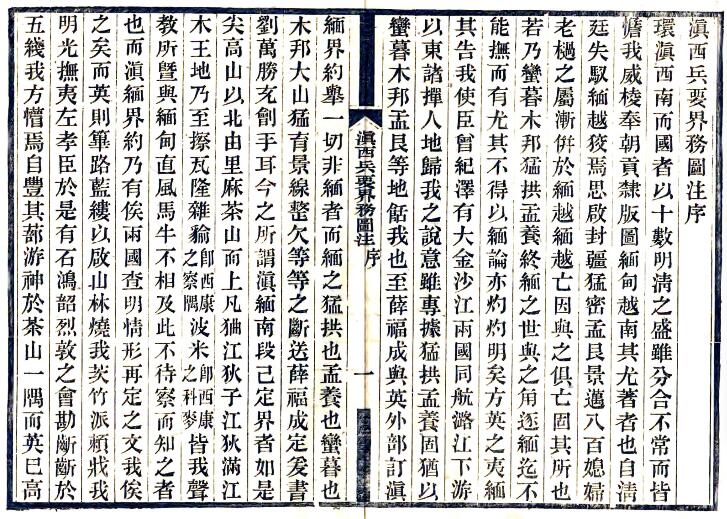 滇西兵要界務圖注序
環滇西南而國者以十數明清之盛雖分合不常而皆
憺我威棱奉朝貢隸版圖緬甸越南其尤著者也自清
廷失馭緬越狡焉思啟封疆猛密孟艮景邁八百媳婦
老檛之屬漸併於緬越緬越亡因與之俱亡固其所也
若乃蠻暮木邦猛拱孟養終緬之世與之角逐緬迄不
能撫而有尤其不得以緬論亦灼灼明矣方英之夷緬
其告我使臣曾紀澤有大金沙江兩國同航潞江下游
以東諸撣人地歸我之說意雖專據猛拱孟養固猶以
蠻暮木邦孟艮等地餂我也至薛福成與英外部訂滇
滇西兵要界務圖注 序
一
緬界約舉一切非緬者而緬之猛拱也孟養也蠻暮也
木邦大山猛育景線整欠等等之斷送薛福成定爰書
劉萬勝充劊手耳今之所謂滇緬南段已定界者如是
尖高山以北由里麻茶山而上凡狪江狄子江狄滿江
木王地乃至擦瓦隆雜貐即西康之察隅波米即西康之科麥皆我聲
教所暨與緬甸直風馬牛不相及此不待察而知之者
也而滇緬界約乃有俟兩國查明情形再定之文我俟
之矣而英則篳路藍縷以啟山林燒我茨竹派賴戕我
明光撫夷左孝臣於是有石鴻韶烈敦之會勘斷斷於
五綫我方懵焉自豐其蔀游神於茶山一隅而英已高